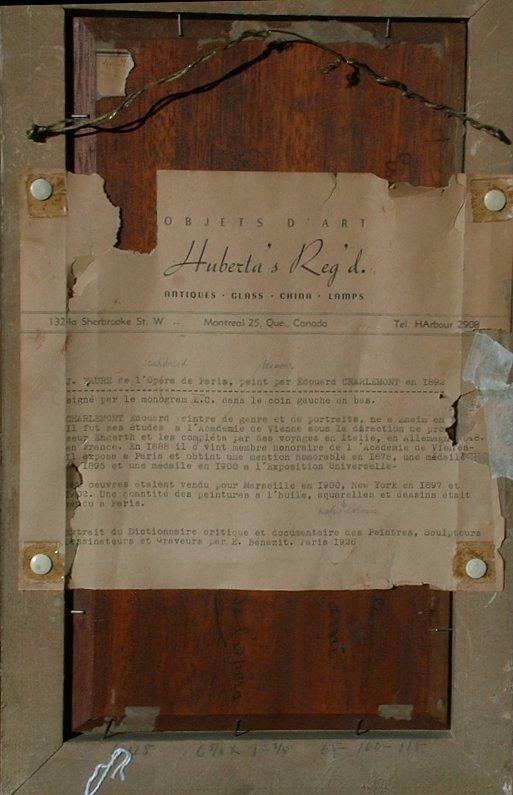 OBJETS D'ART
Huberta's Reg'd.
ANTIQUES · GLASS · CHINA · LAMPS
1324a Sherbrooke St. W. Montreal 25, Que., Canada Tel. HArbour 2908
J. FAURE de l'Opéra de Paris, peint par Edouard CHARLEMONT en 1892
signé par le monogram E.C. dans le coin gauche en bas.
CHARLEMONT Edouard peintre de genre et de portraits, né a Znaim en
Il fut ses études a l'Académie de Vienne sous la direction de pro
seur Engerth et les compléta par des voyages en Italie, en Allemagne
en France. En 1888 il d vint membre honoraire de l'Académie de Vienne-
Il exposa a Paris et obtint une mention honorable en 1878, une médaile
1895 et une médaile en 1900 a l'Exposition Universelle-
oeuvres étaient vendu pour Marseille en 1900, New York en 1897 et
1902. Une quantité des peintures a l'huile, aquarelles et dessins était
vendu a Paris.
Extrait du Dictionnaire critique et documentaire des Peintres, Sculpteurs
Dessinateurs et Graveurs par E. Bénézit. Paris 1926